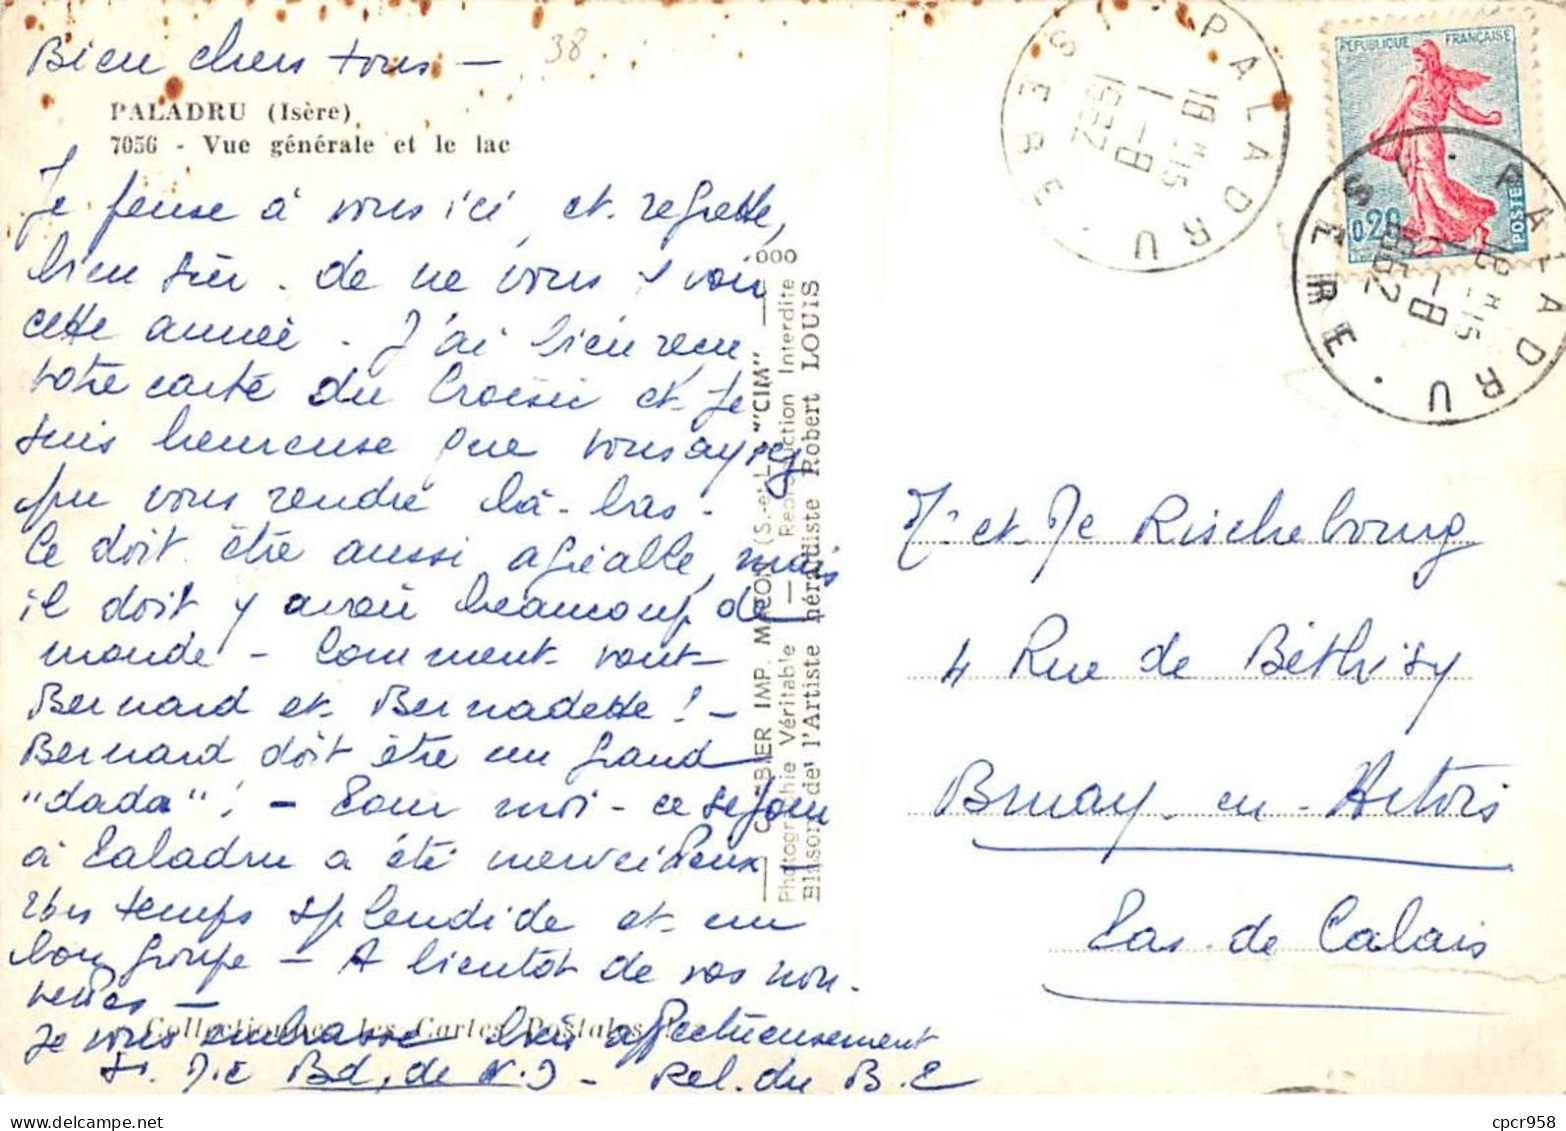 Bien chers tous -
38
PALADRU (Isère)
7056 - Vue générale et le lac
Je pense à vous ici, et regrette,
bien sûr - de ne vous voir
cette année - J'ai bien reçu
votre carte du Croisic et je
suis heureuse que vous ayez
pu vous rendre là-bas -
Ce doit être aussi agréable, mais
il doit y avoir beaucoup de
monde - Comment vont
Bernard et Bernadette ! -
Bernard doit être un grand
"dada" ! - Pour moi - ce séjour
à Paladru a été merveilleux
temps splendide et un
bon groupe - A bientôt de vos nou-
velles -
Je vous embrasse bien affectueusement
Bd, de N.D - Rel. du B. C
Collectionnez les Cartes Postales
COMBIER IMP. MACON (S.-et-L.) "CIM"
Photographie Véritable - Reproduction Interdite
Blason de l'Artiste héraldiste Robert LOUIS
000
PALADRU ISERE
16 H 15
1 - 8
1962
REPUBLIQUE FRANÇAISE
0,20
POSTES
PALADRU ISERE
16 H 15
1 - 8
1962
Mr et Me Rischebourg
4 Rue de Béthisy
Bruay-en-Artois
Pas-de-Calais
cpcr958